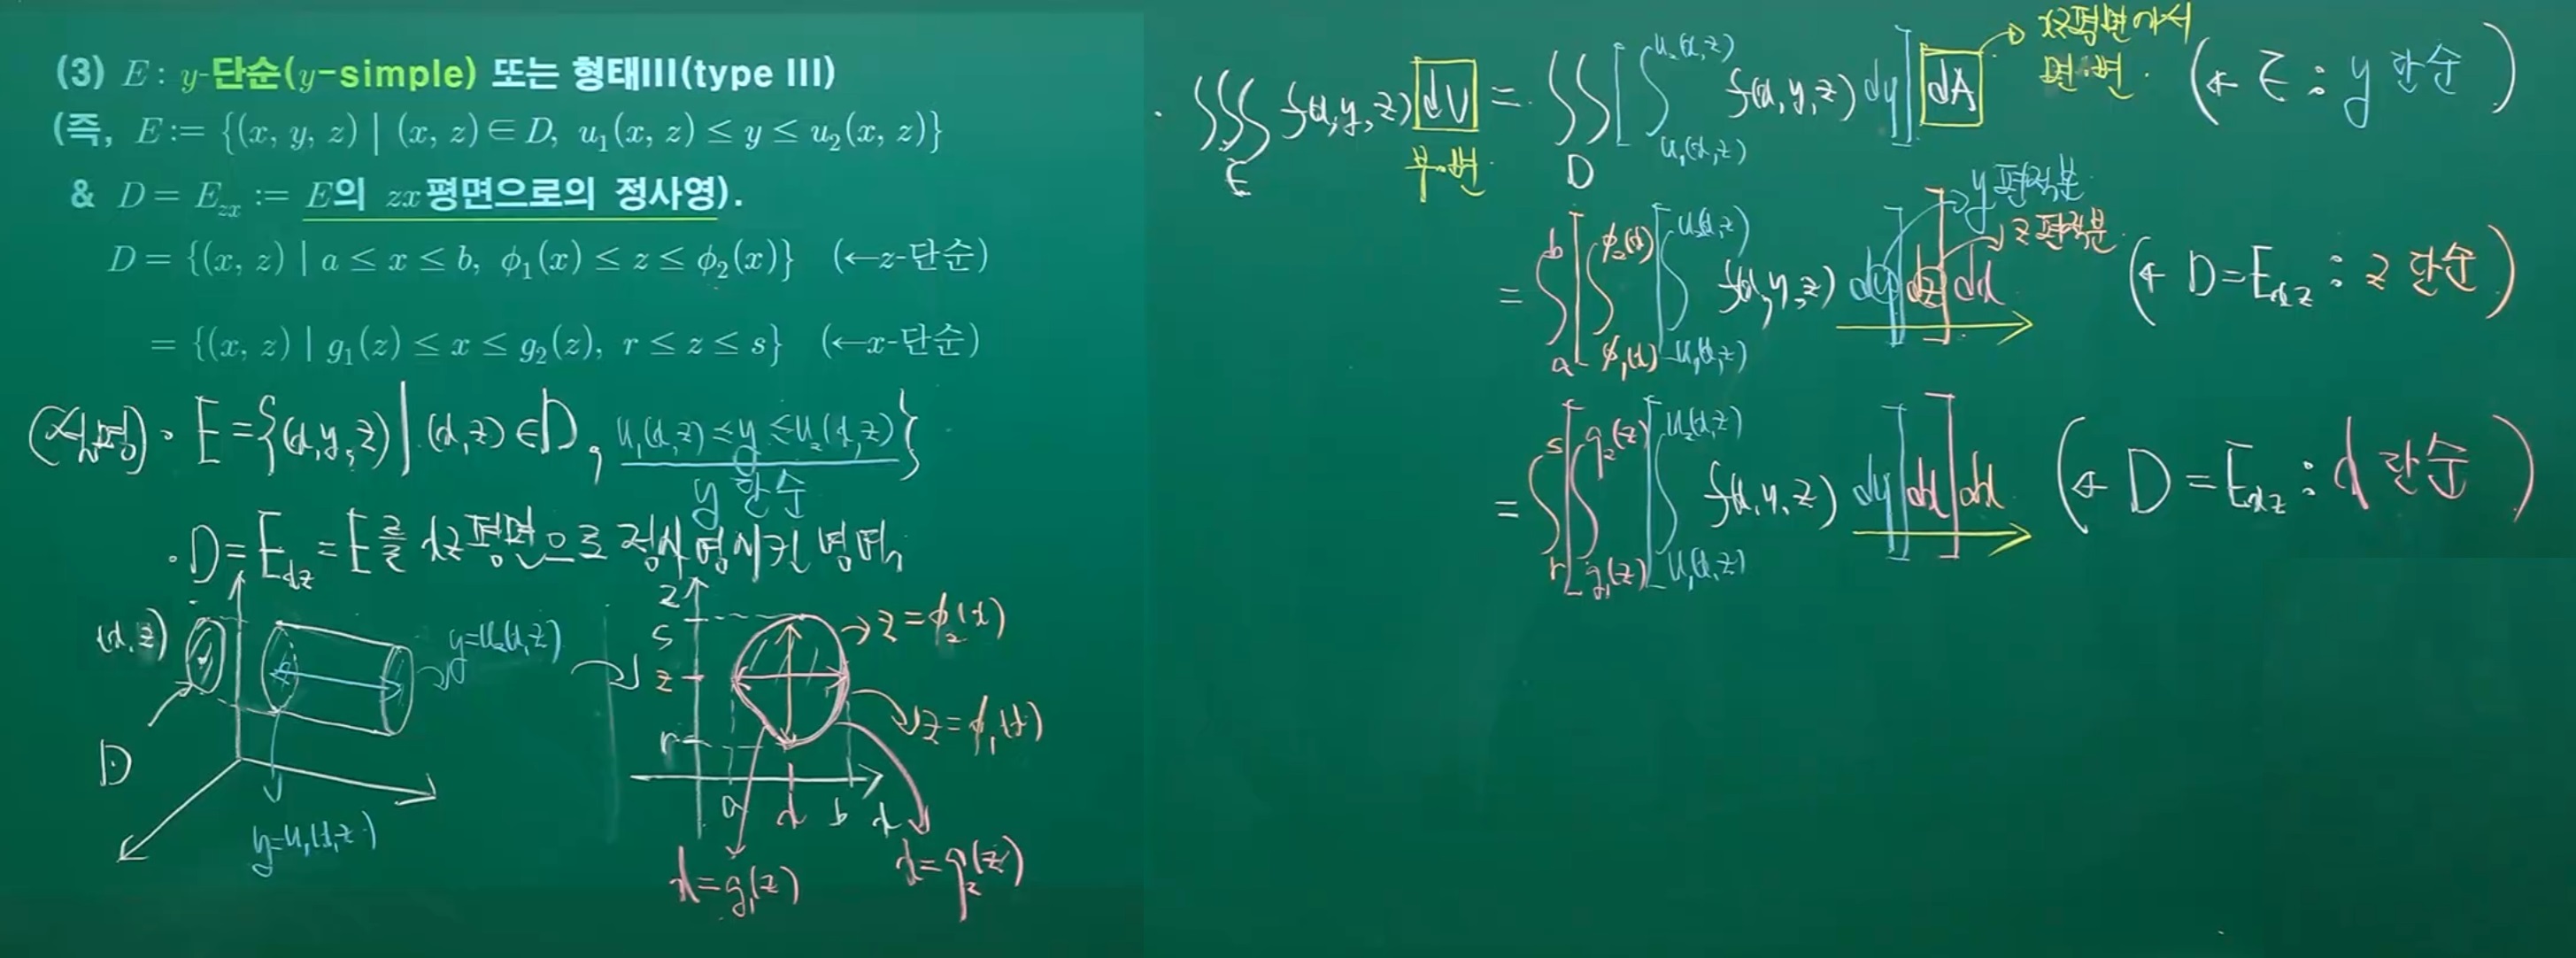 (3) E : y-단순(y-simple) 또는 형태III(type III)
(즉, E := {(x, y, z) | (x, z) ∈ D, u₁(x, z) ≤ y ≤ u₂(x, z)}
& D = E_zx := E의 zx평면으로의 정사영).
D = {(x, z) | a ≤ x ≤ b, ϕ₁(x) ≤ z ≤ ϕ₂(x)} (←z-단순)
= {(x, z) | g₁(z) ≤ x ≤ g₂(z), r ≤ z ≤ s} (←x-단순)
(설명)· E = {(x,y,z) | (x,z) ∈ D, u₁(x,z) ≤ y ≤ u₂(x,z)}
y 단순
· D = E_xz = E를 xz평면으로 정사영시킨 영역
(x,z)
D
y=u₂(x,z)
y=u₁(x,z)
z
s
z
r
a x b x
z=ϕ₂(x)
z=ϕ₁(x)
x=g₁(z)
x=g₂(z)
· ∭_E f(x,y,z) dV = ∬_D [∫_{u₁(x,z)}^{u₂(x,z)} f(x,y,z) dy] dA (← E : y 단순)
부·변
xz평면에서
면·변.
= ∫_a^b [∫_{ϕ₁(x)}^{ϕ₂(x)} [∫_{u₁(x,z)}^{u₂(x,z)} f(x,y,z) dy] dz] dx (← D = E_xz : z 단순)
y편적분
z편적분
= ∫_r^s [∫_{g₁(z)}^{g₂(z)} [∫_{u₁(x,z)}^{u₂(x,z)} f(x,y,z) dy] dx] dx (← D = E_xz : x 단순)